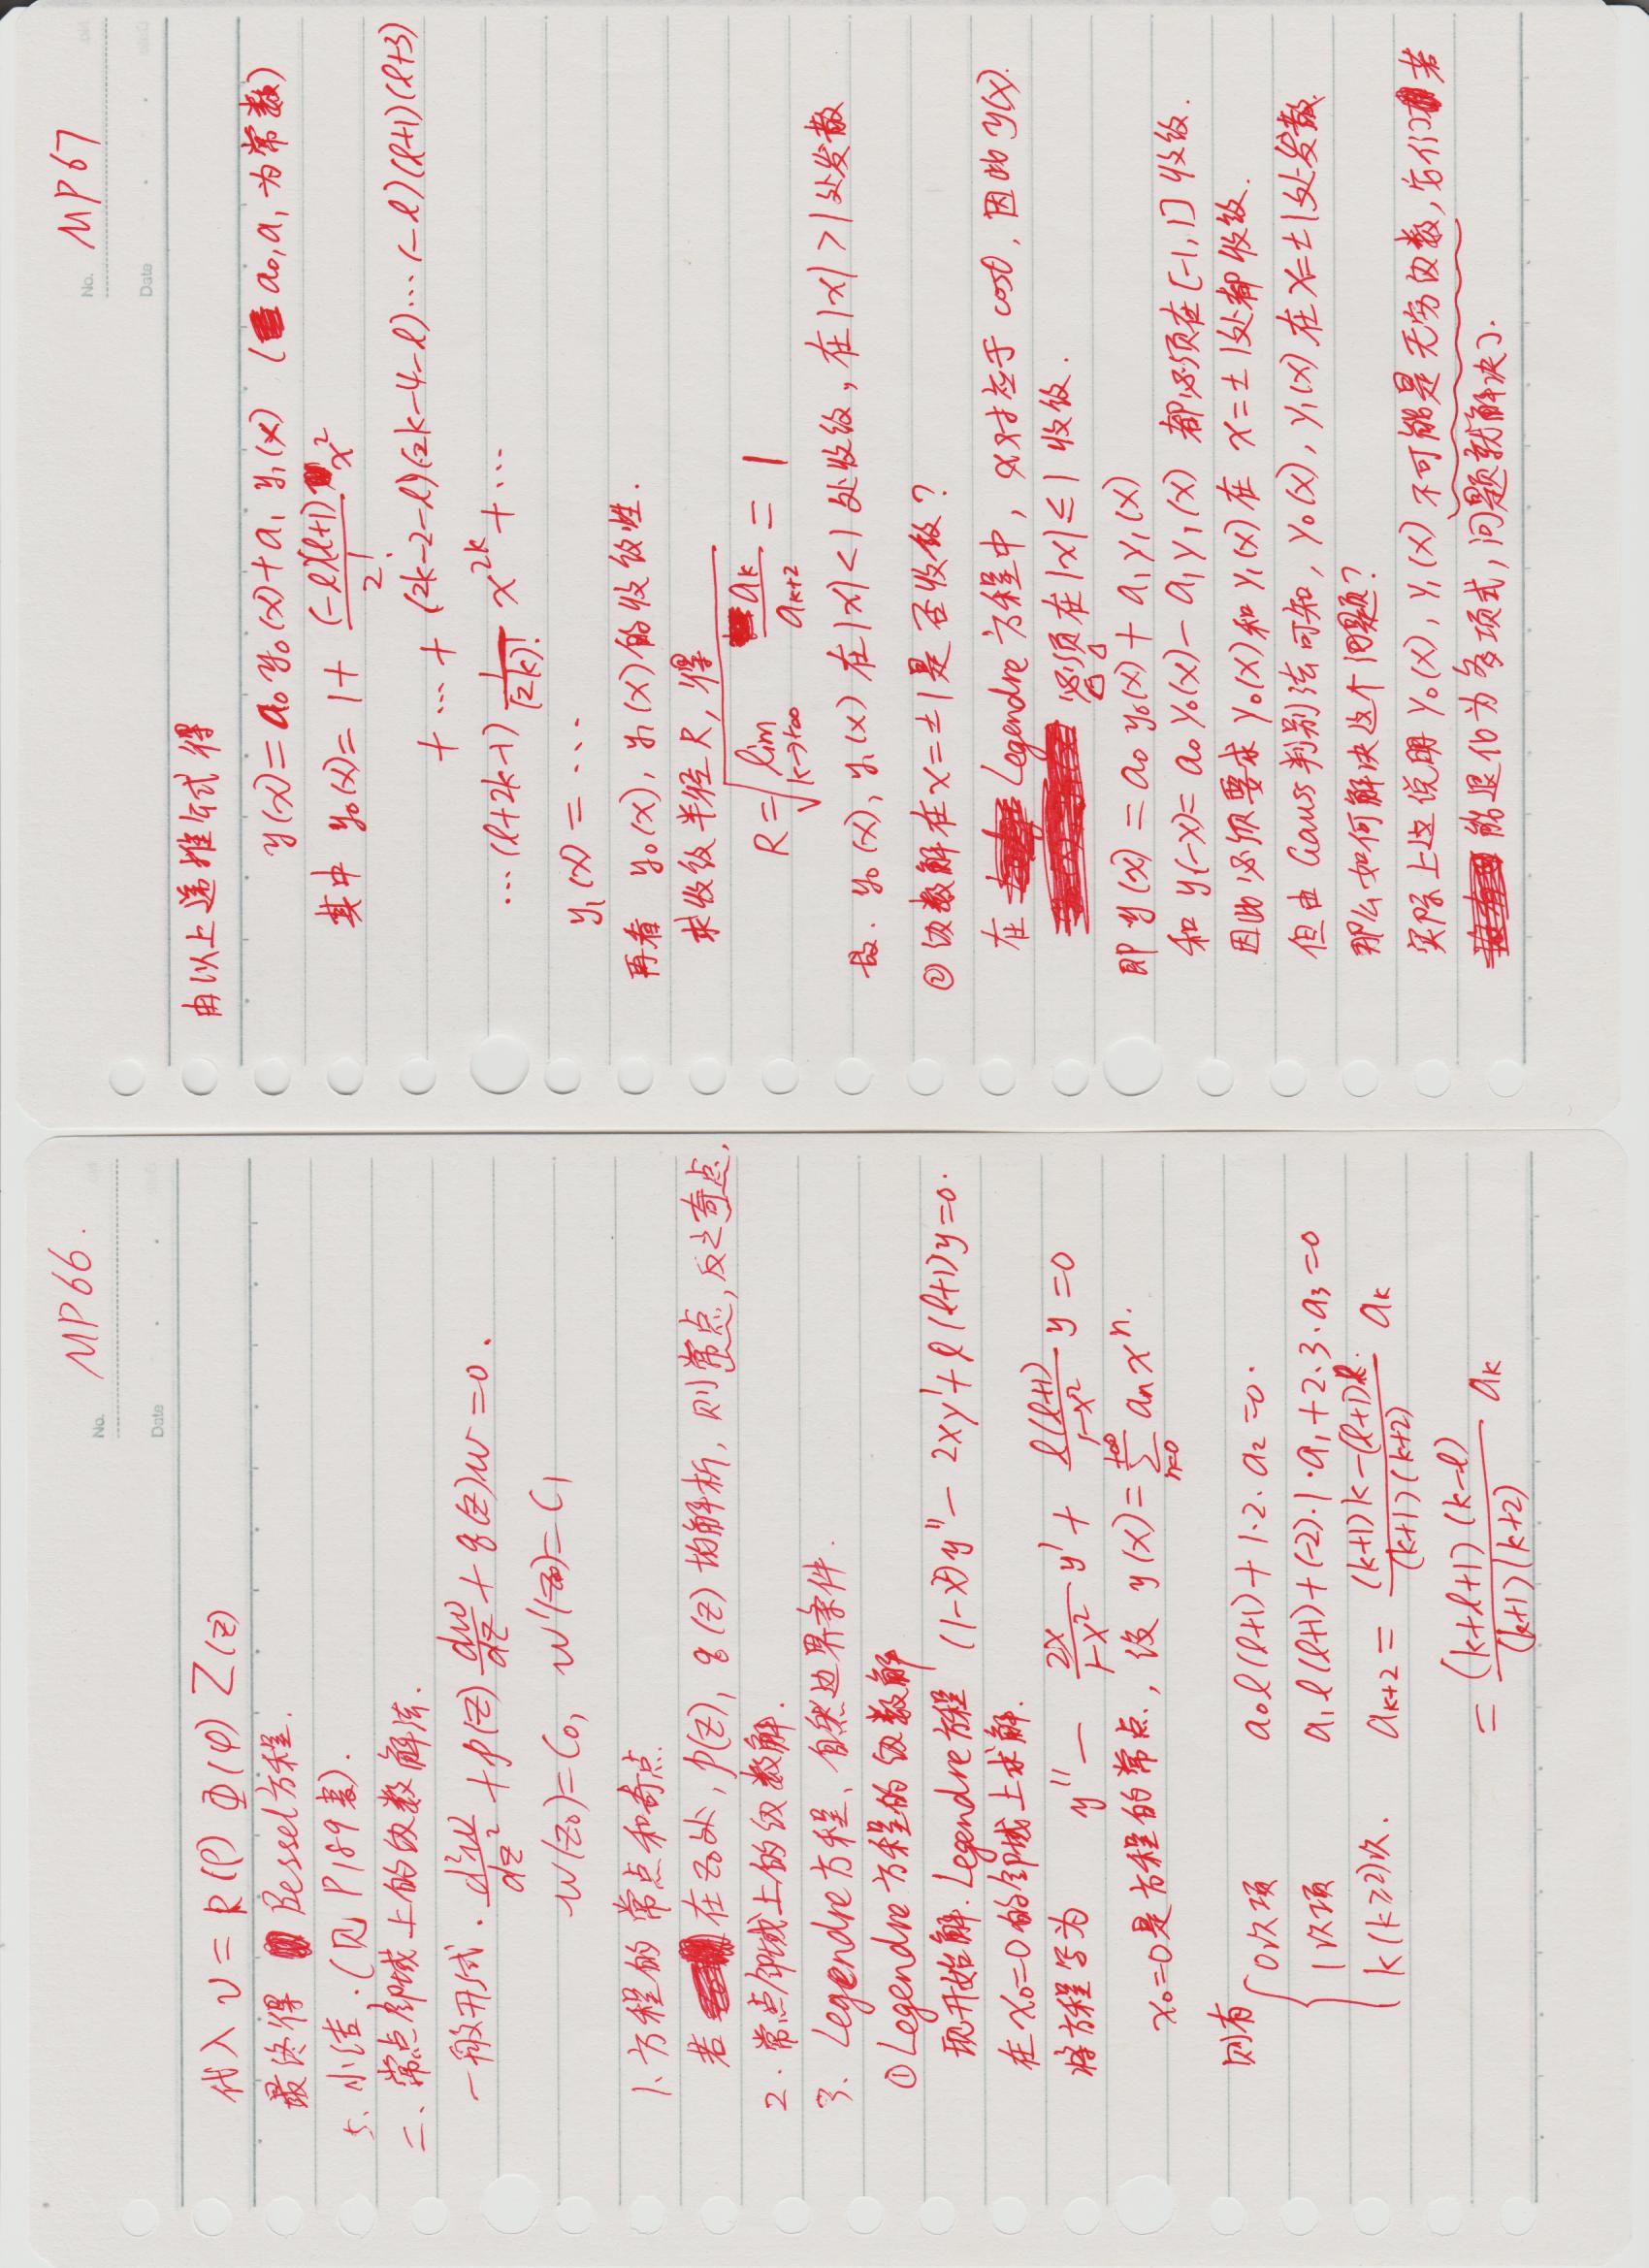 No. MP66.
Date
代入 v = R(ρ) Φ(φ) Z(z)
最终得 Bessel方程.
5、小结.(见 P189表).
二、常点邻域上的级数解法.
一般形式. d²w/dz² + p(z) dw/dz + q(z)w = 0.
w(z₀)=C₀, w'(z₀)=C₁
1、方程的常点和奇点.
若 在z₀处, p(z), q(z) 均解析, 则常点, 反之奇点.
2. 常点邻域上的级数解.
3. Legendre方程、自然边界条件.
① Legendre方程的级数解
现开始解. Legendre方程 (1-x²)y'' - 2xy' + l(l+1)y=0.
在 x₀=0 的邻域上求解.
将方程写为 y'' - 2x/(1-x²) y' + l(l+1)/(1-x²) y = 0
x₀=0是方程的常点, 设 y(x) = Σ_{n=0}^{+∞} aₙxⁿ.
则有
0次项 a₀l(l+1) + 1·2·a₂ = 0.
1次项 a₁l(l+1) + (-2)·1·a₁ + 2·3·a₃ = 0
k(k≥2)次. a_{k+2} = ((k+1)k-(l+1)l)/((k+1)(k+2)) a_k
= ((k+l+1)(k-l))/((k+1)(k+2)) a_k
No. MP67
Date
由以上递推公式得
y(x) = a₀y₀(x) + a₁y₁(x) ( a₀,a₁为常数)
其中 y₀(x) = 1 + ((-l)(l+1))/2! x²
+ … + (2k-2-l)(2k-4-l)…(-l)(l+1)(l+3)
…(l+2k-1) 1/(2k)! x^{2k} + …
y₁(x) = …
再看 y₀(x), y₁(x)的收敛性.
求收敛半径R, 得
R = √(lim_{k→+∞} a_k/a_{k+2}) = 1
故. y₀(x), y₁(x) 在|x|<1处收敛, 在|x|>1处发散
② 级数解在x=±1是否收敛?
在 Legendre方程中, x对应于 cosθ, 因此 y(x).
必须在|x|≤1 收敛.
即 y(x) = a₀y₀(x) + a₁y₁(x)
和 y(-x) = a₀y₀(x) - a₁y₁(x) 都必须在[-1,1]收敛.
因此必须要求 y₀(x)和y₁(x)在 x=±1处都收敛.
但由 Gauss判别法可知, y₀(x), y₁(x)在x=±1处发散.
那么如何解决这个问题?
实际上这说明 y₀(x), y₁(x) 不可能是无穷级数, 它们若
能退化为多项式, 问题就解决了.